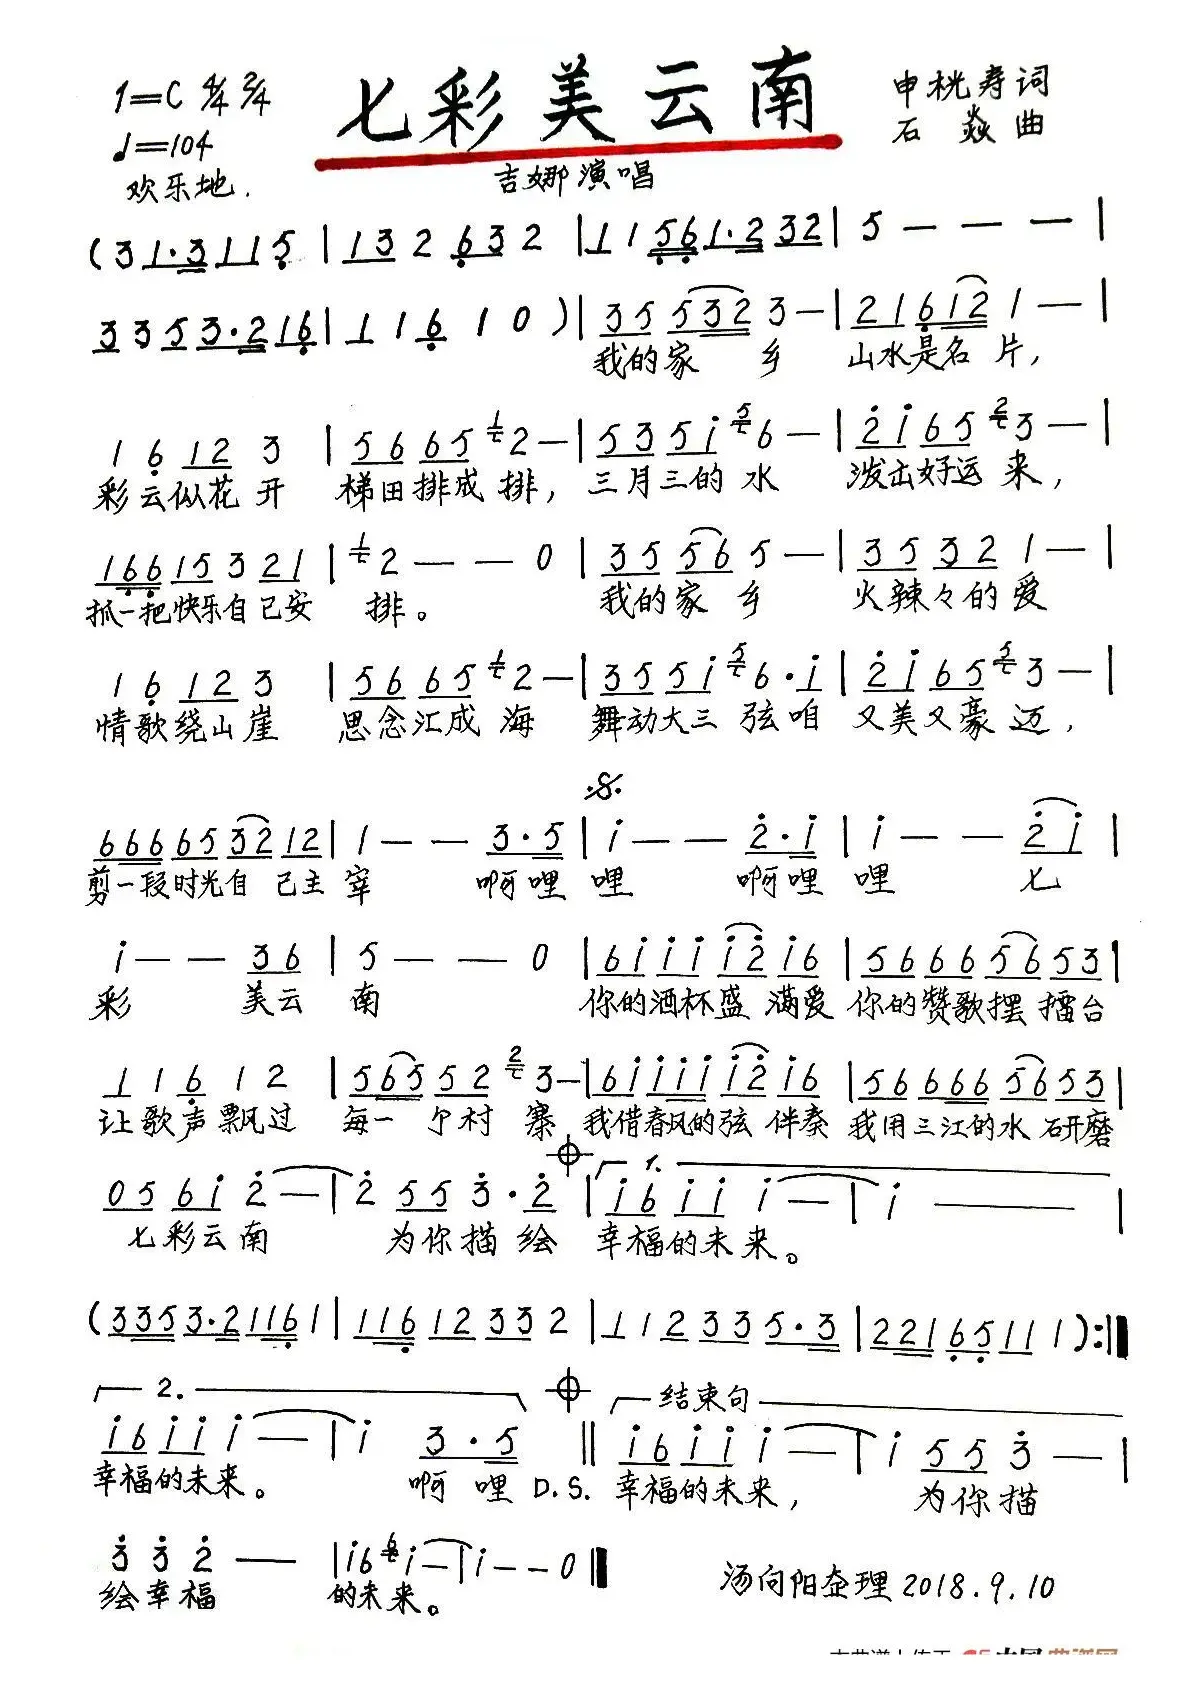 七彩美云南
1=C 4/4 2/4
♩=104
欢乐地.
申桄寿词
石焱曲
吉娜演唱
(3 1·3 1 1 5 | 1 3 2 6 3 2 | 1 1 5 6 1·2 3 2 | 5 — — — |
3 3 5 3·2 1 6 | 1 1 6 1 0 ) | 3 5 5 3 2 3 — | 2 1 6 1 2 1 — |
我的家 乡 山水是名 片,
1 6 1 2 3 | 5 6 6 5 1 2 — | 5 3 5 i 5 6 — | 2 i 6 5 2 3 — |
彩云似花 开 梯田排成 排, 三月三的 水 泼出好运 来,
1 6 6 1 5 3 2 1 | 1 2 — — 0 | 3 5 5 6 5 — | 3 5 3 2 1 — |
抓一把快乐自己安 排。 我的家 乡 火辣々的 爱
1 6 1 2 3 | 5 6 6 5 1 2 — | 3 5 5 i 5 6 · i | 2 i 6 5 5 3 — |
情歌绕山崖 思念汇成 海 舞动大三 弦咱 又美又豪 迈,
𝄋
6 6 6 6 5 3 2 1 2 | 1 — — 3 · 5 | i — — 2 · i | i — — 2 i |
剪一段时光自 己主 宰 啊哩 哩 啊哩 哩 七
i — — 3 6 | 5 — — 0 | 6 i i i i 2 i 6 | 5 6 6 6 5 6 5 3 |
彩 美云 南 你的酒杯盛 满爱 你的赞歌摆 擂台
1 1 6 1 2 | 5 6 5 5 2 2 3 — | 6 i i i i i 2 i 6 | 5 6 6 6 6 5 6 5 3 |
让歌声飘过 每一 个村 寨 我借春风的弦 伴奏 我用三江的水 研磨
0 5 6 i 2 — | 2 5 5 3 · 2 | 1. i 6 i i i — | i ——— |
七彩云南 为你描 绘 幸福的未来。
(3 3 5 3·2 1 1 6 1 | 1 1 6 1 2 3 3 2 | 1 1 2 3 3 5·3 | 2 2 1 6 5 1 1 1 ) :‖
2. 结束句
i 6 i i i — | i 3 · 5 ‖ i 6 i i i — | i 5 5 3 — |
幸福的未来。 啊 哩 D.S. 幸福的未来, 为你描
3 3 2 — | i 6 6 i — | i — — 0 ‖
绘幸福 的未来。
汤向阳企理 2018.9.10